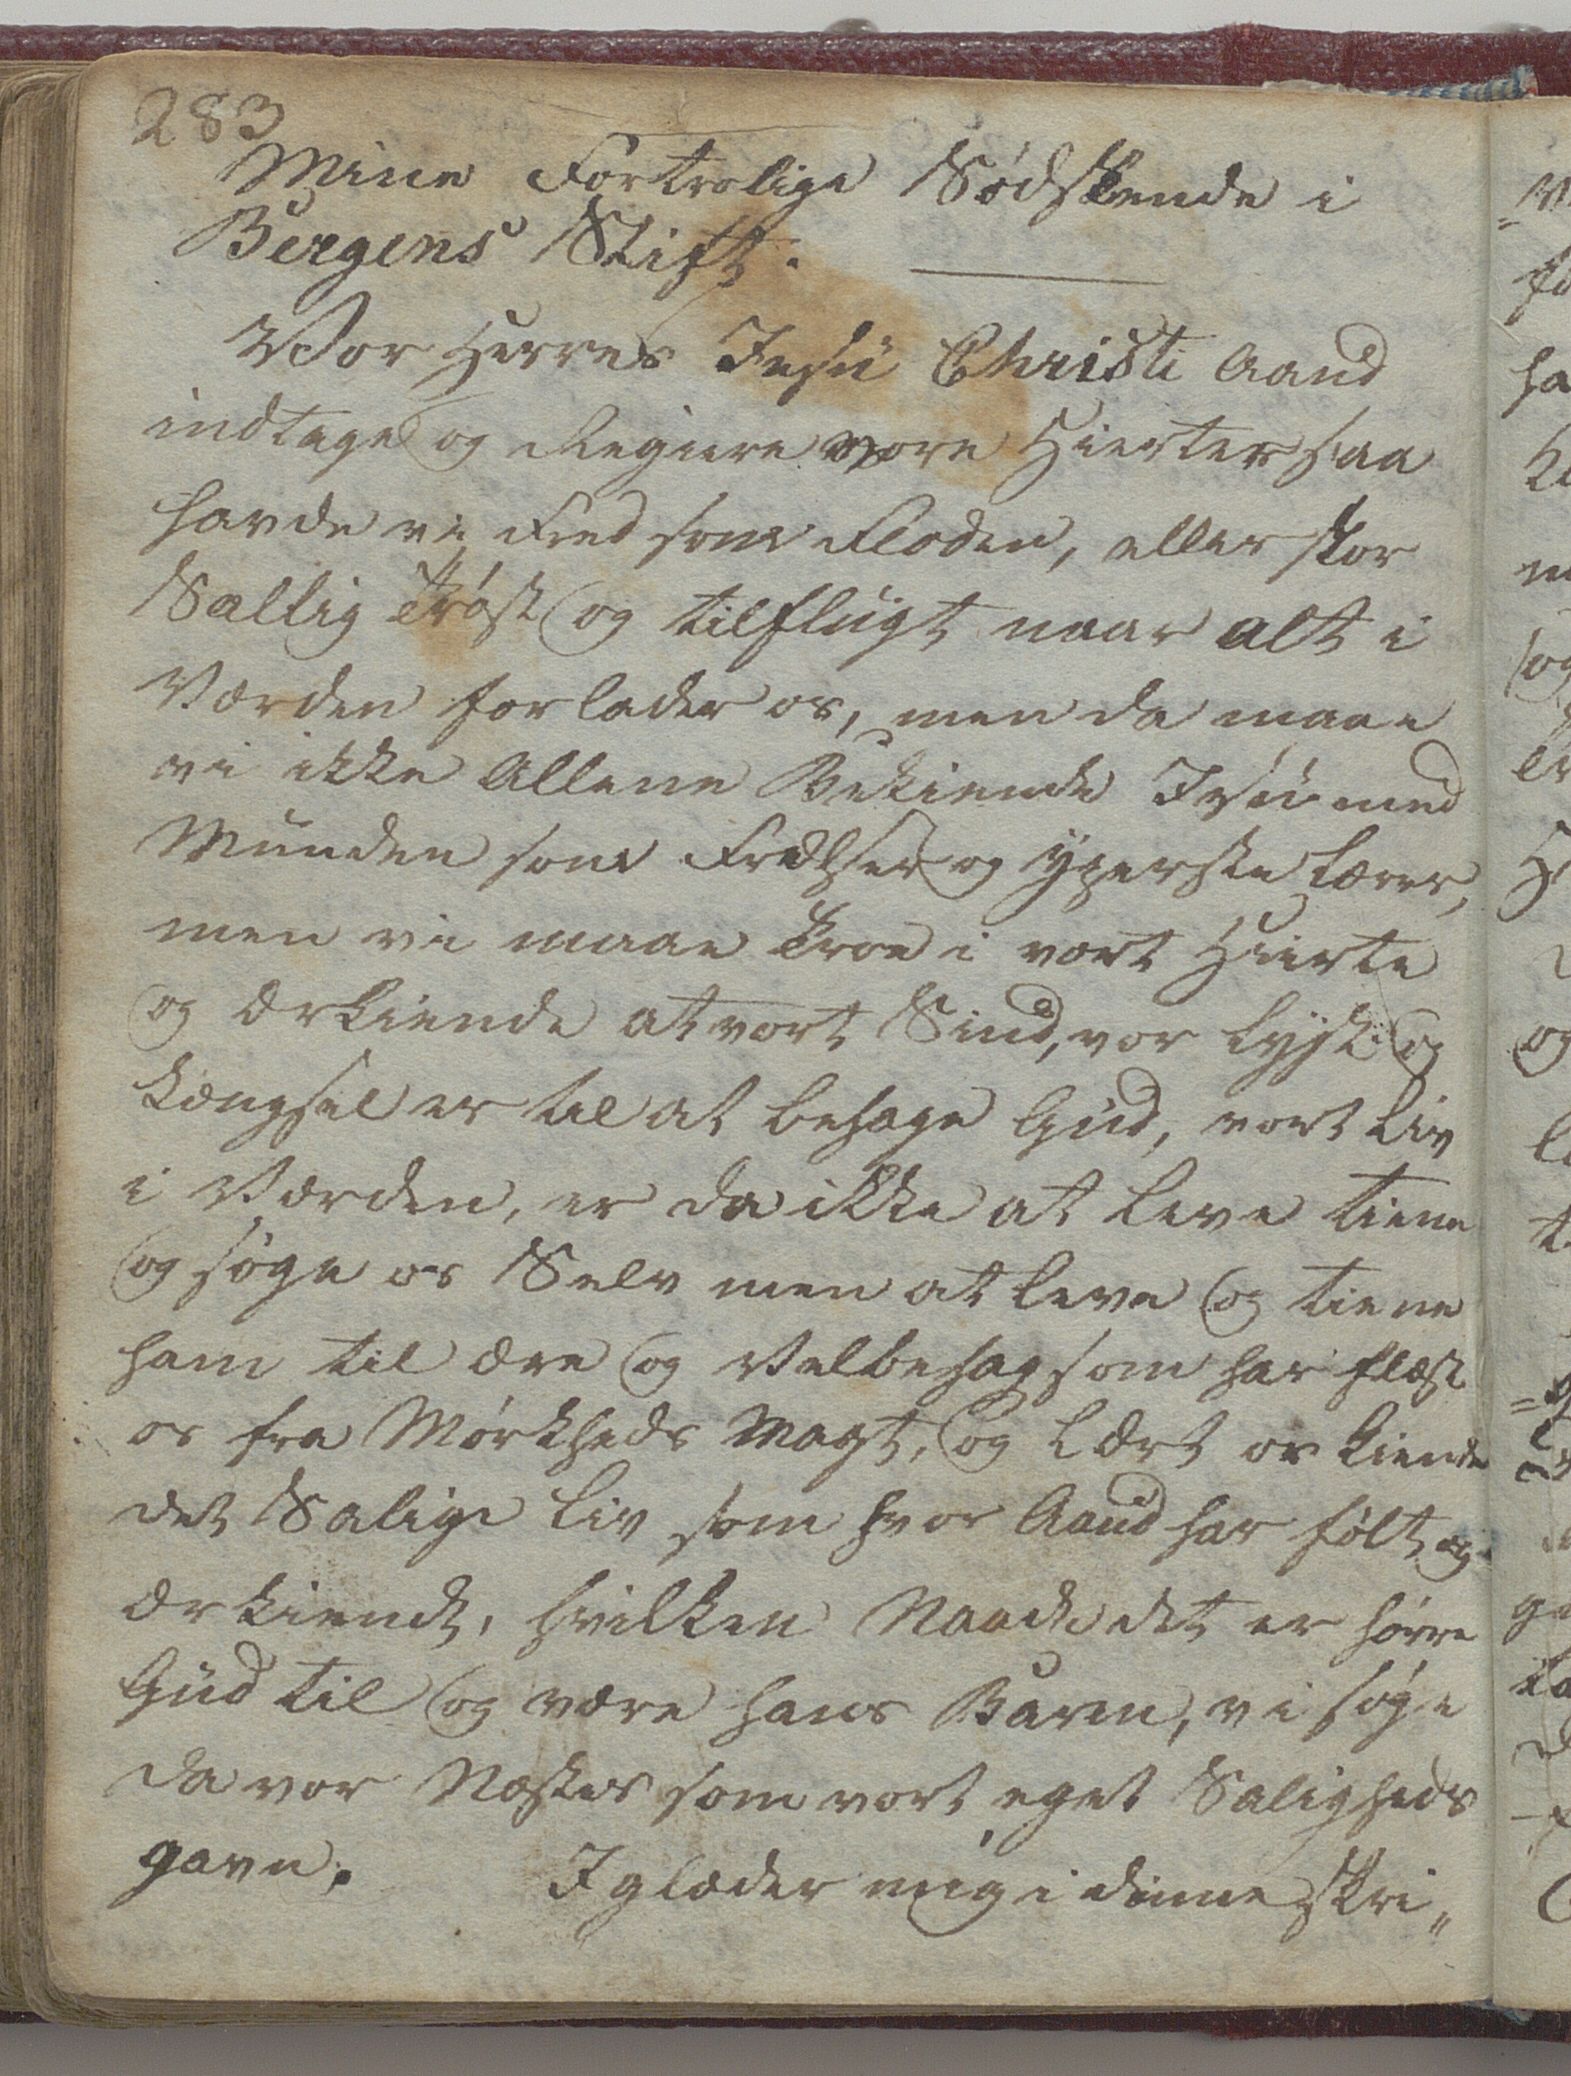 283
Mine Fortrolige Sødskende i
Bergens Stift.
Vor Herres Jesu Christi Aand
indtage og Regiere vore Hierter saa
havde vi Fred som Floden, eller stor
Sallig Trøst og tilflugt naar alt i
Værden forlader os, men da maae
vi ikke Allene Bekiende Jesu med
Munden som Frelser og yperste lærer,
men vi maae troe i vort Hierte
og Erkiende at vort Sind, vor lyst og
længsel er til at behage Gud, vort Liv
i Værden, er da ikke at leve tiene
og søge os Selv men at leve og tiene
ham til ære og Velbehag som har flæst
os fra Mørkheds Magt, og Lært os kiende
det Salige Liv som hvor Aand har følt og
ærkiendt, hvilken Naade det er hørre
Gud til og være hans Barn, vi søge
da vor Næstes som vort eget Saligheds
gavn.
I glæder mig i dinne skri„